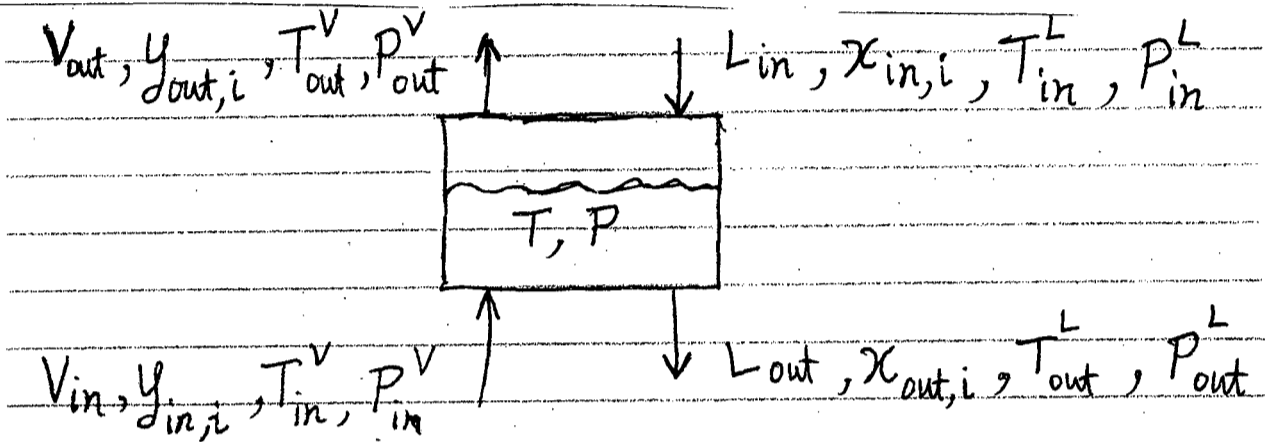 V_out, y_out,i, T^V_out, P^V_out
L_in, x_in,i, T^L_in, P^L_in
T, P
V_in, y_in,i, T^V_in, P^V_in
L_out, x_out,i, T^L_out, P^L_out